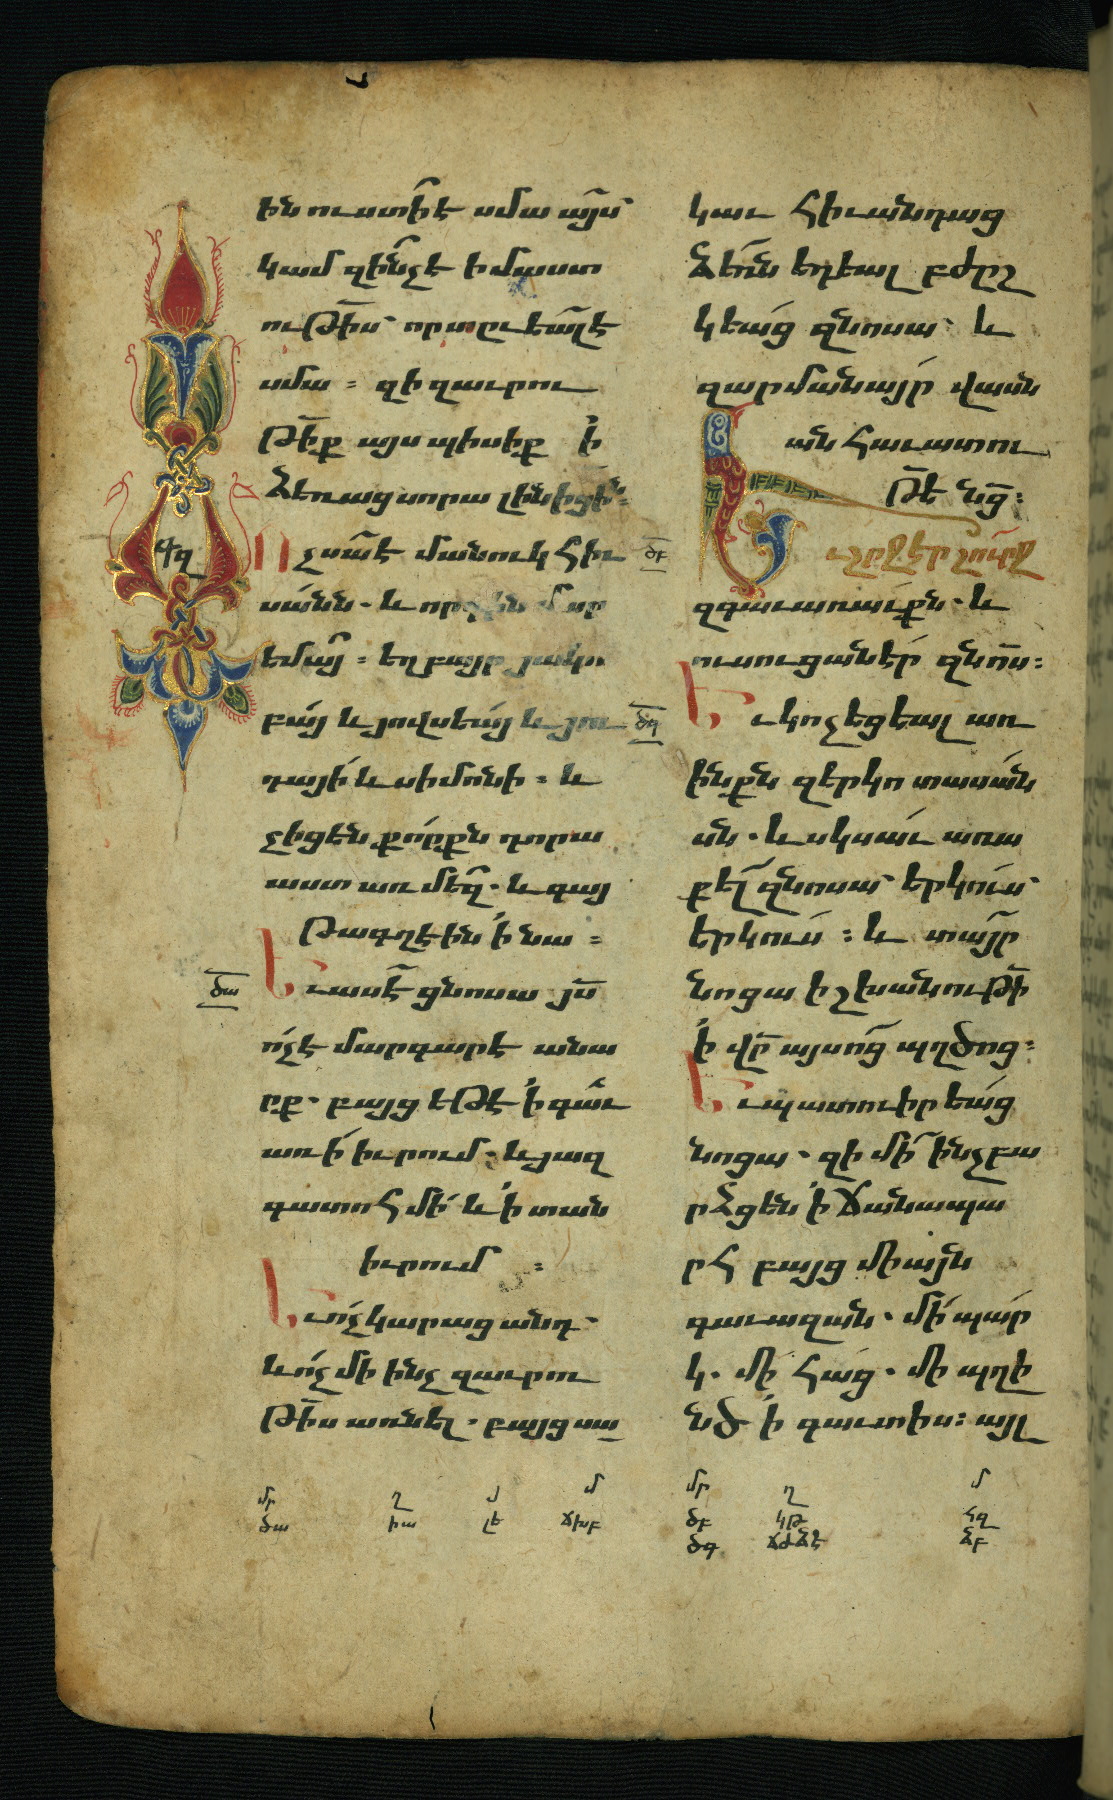 ին ուստի՞ է սմա այս՝
կամ զի՞նչ է իմաստ
ութիս՝ որ տըւեալ է
սմա ։ զի զաւրու
թիք այսպիսիք ի
ձեռաց սորա լինիցին։
Ոչ սա է մանուկ հիւ
սանն . և որդին մար
եմայ ։ եղբայր յակո
բայ և յովսեայ և յու
դայի և սիմոնի ։ և
չիցեն քորքն դորա
աստ առ մեզ . և գայ
թագղէին ի նա ։
Եւ ասէ ցնոսա յս
ոչ է մարգարէ անա
րգ . բայց եթէ ի գաւ
առի իւրում . և յազ
գատոհմի և ի տան
իւրում ։
Եւ ոչ կարաց անդ .
և ոչ մի ինչ զաւրու
թիս առնել . բայց սա
կաւ հիւանդաց
ձեռն եդեալ բժըշ
կեաց զնոսա՝ և
զարմանայր վասն
ան հաւատու
թե նց։
Եւ շրջէր շուրջ
զգաւառաւքն . և
ուսուցանէր զնոս։
Եւ կոչեցեալ առ
ինքն զերկոտասան
ան . և սկսաւ առա
քել զնոսա՝ երկուս՝
երկուս ։ և տայր
նոցա իշխանութի
ի վր այսոց պղծոց։
Եւ պատուիրեաց
նոցա . զի մի ինչ բա
րձցեն ի ճանապա
րհ բայց միայն
գաւազան . մի պար
կ . մի հաց . մի պղի
նձ ի գաւտիս։ այլ
գզ
ծա
ծբ
ծգ
մր ղ յ մ
ծա իա լե ճխբ
մր ղ մ
ծբ կթ հզ
ծգ ճժ ձէ ձբ